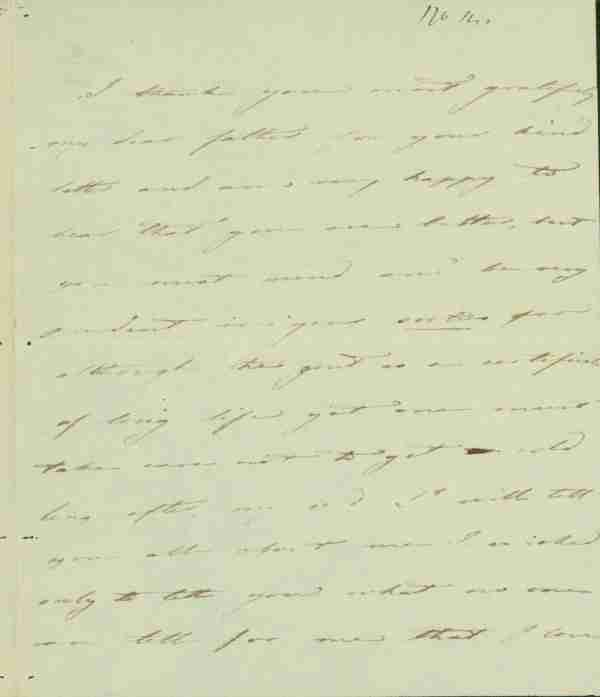 I thank you most gratefully
my dear father for your kind
letter and am very happy to
hear that you are better, but
you must mind and be very
prudent in your sorties for
although the gout is a certificate
of long life yet one must
take care not to get cold
after
you all about me I
only to tell you what no one
can tell for me that I love